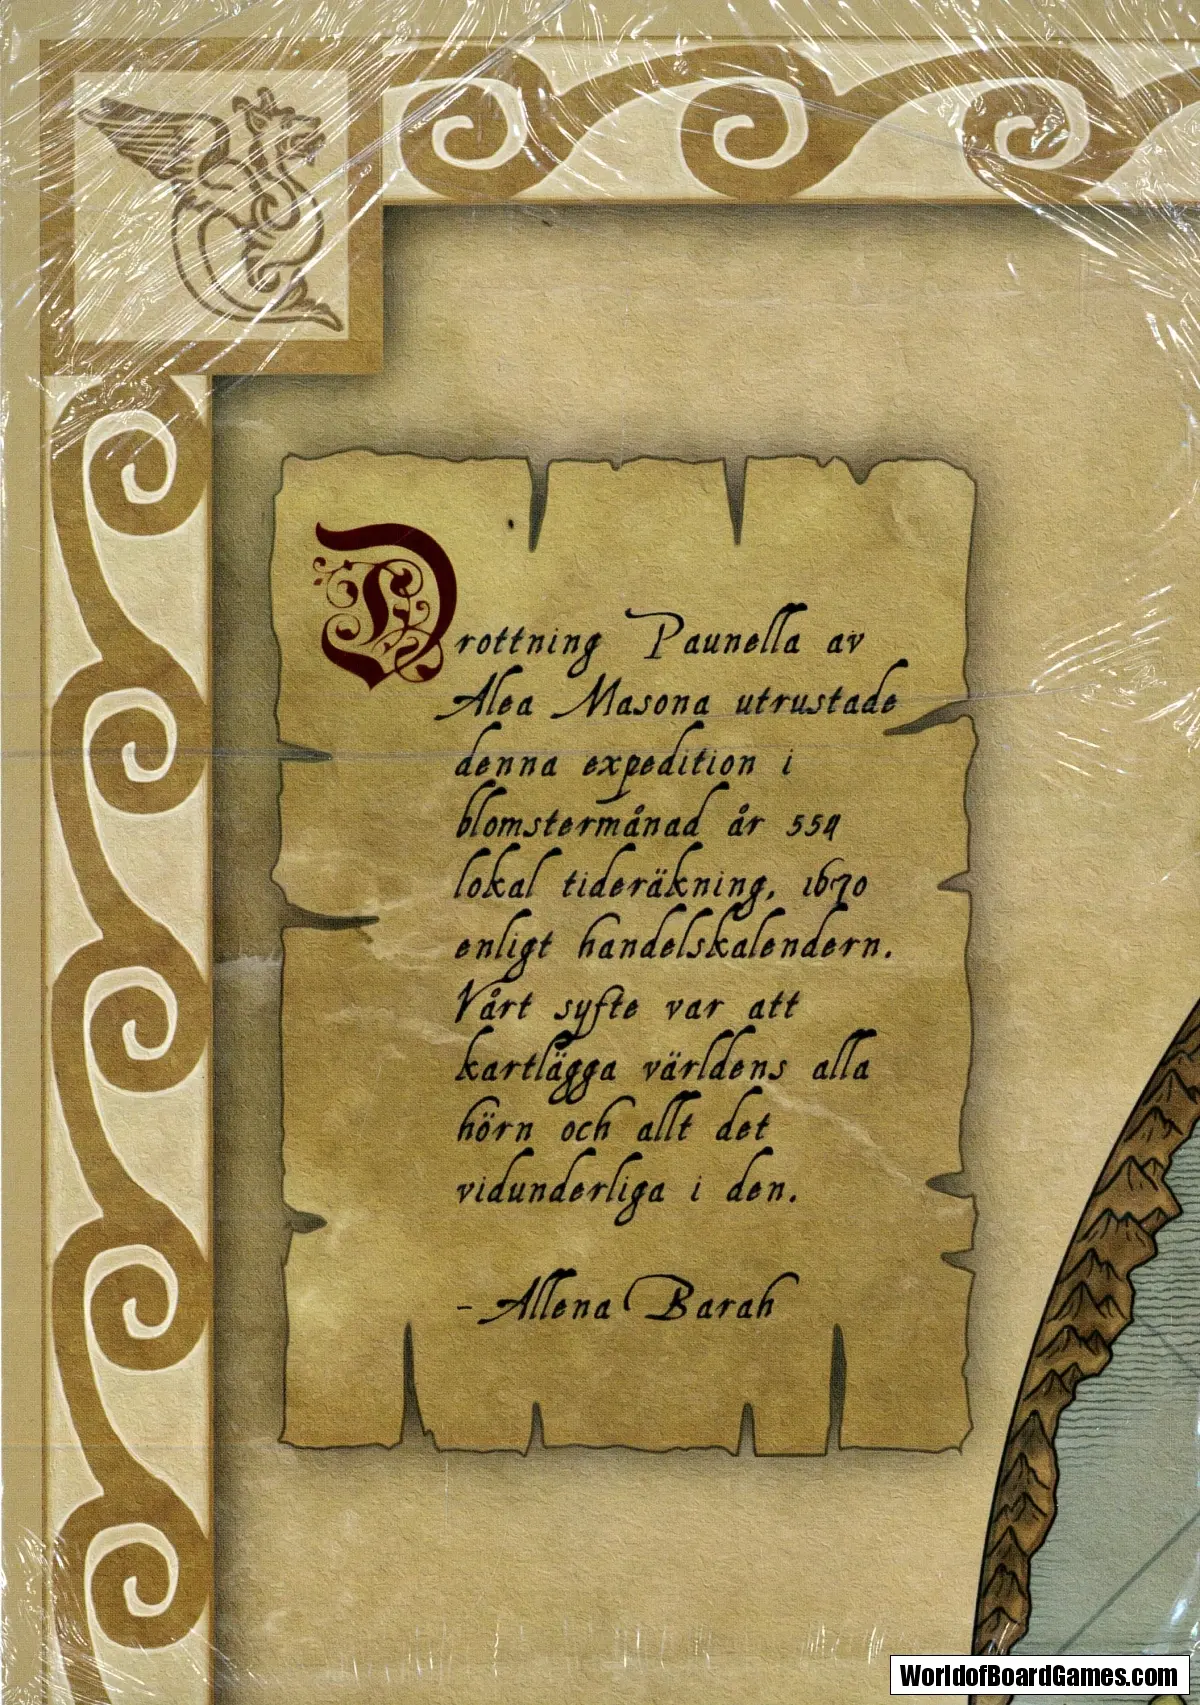 Drottning Paunella av
Alea Masona utrustade
denna expedition i
blomstermånad år 559
lokal tideräkning, 1670
enligt handelskalendern.
Vårt syfte var att
kartlägga världens alla
hörn och allt det
vidunderliga i den.
- Allena Barah
WorldofBoardGames.com